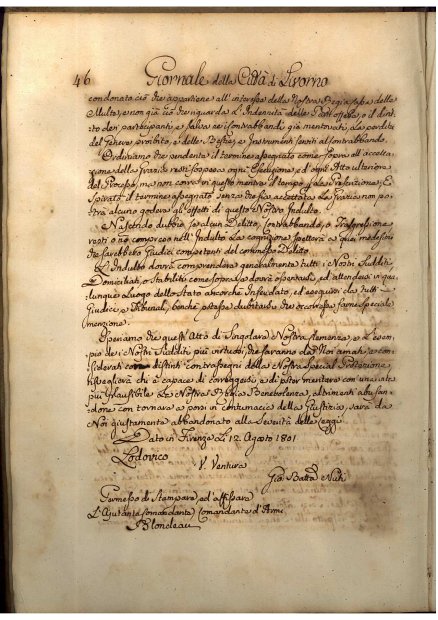 46 Giornale della Città di Livorno
condonato ciò che appartiene all'interesse della Nostra Regia sopra delle
Multe, e non già ciò che riguarda l'Indennità delle Parti offese, o il dirit
to dei partecipanti, e salva nei contrabbandi già mentovati la perdita
del Genere proibito, e delle Bestie, e Instrumenti serviti al contrabbando.
Ordiniamo che pendente il termine assegnato come sopra all'accetta
zione della Grazia resti sospesa ogni Esecuzione, ed ogni Atto ulteriore
del Processo, ma non corra in questo mentre il tempo a la Prescrizione; E
spirato il termine assegnato senza che sia accettata la Grazia non po
trà alcuno godere gli effetti di questo Nostro Indulto.
Nascendo dubbio se alcun Delitto, Contrabbando, o Trasgressione
resti o nò compreso nell'Indulto la cognizione spetterà a quei medesimi
che sarebbero Giudici competenti del commesso Delitto.
L'Indulto dovrà comprendere generalmente tutti i Nostri Sudditi
Domiciliati, o Stabiliti come sopra, e dovrà osservarsi, ed attendersi in qua
lunque Luogo dello Stato ancorchè Infeudato, ed eseguirsi da tutti i
Giudici, e Tribunali, benchè potesse dubitarsi che occorresse farne speciale
menzione.
Speriamo che quest'Atto di Singolare Nostra Clemenza, e l'esem
pio dei Nostri Sudditi più virtuosi, che saranno da Noi amati, e con
siderati con distinti contrassegni della Nostra Special Protezione
risveglierà chi è capace di correggersi, e di poter meritare con una vita
più plausibile la Nostra Regia Benevolenza, altrimenti abusan
done con tornare a porsi in contumacia della Giustizia, sarà da
Noi giustamente abbandonato alla Severità delle Leggi.
Dato in Firenze Li 12 Agosto 1801
Lodovico
V. Ventura
Gio: Batta Nuti
Permesso di Stampare, ed affissare
L'Ajutante Comandante Comandante d'Armi
Blondeau